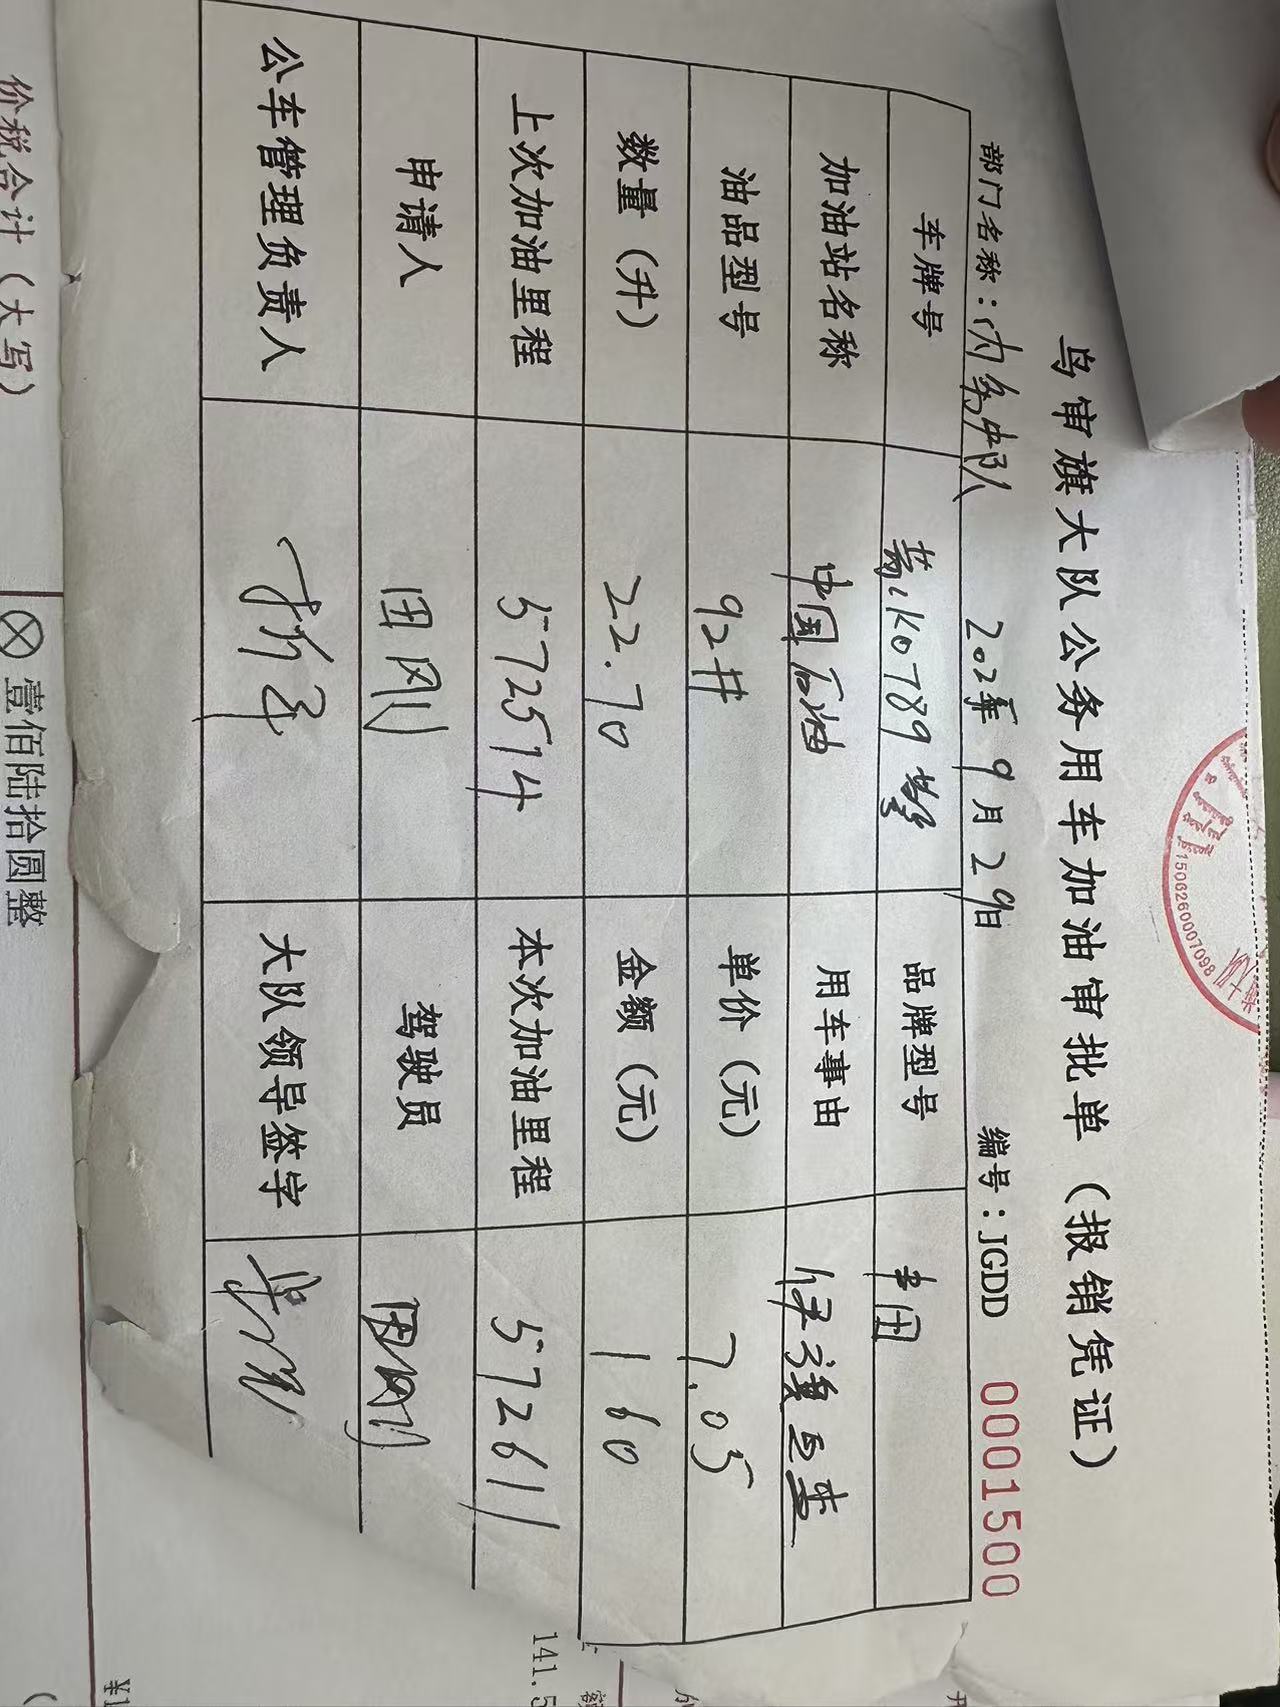 乌审旗大队公务用车加油审批单（报销凭证）
部门名称：内务中队 9月29日 编号：JGDD 0001500
车牌号 蒙K0789警 品牌型号 丰田
加油站名称 中国石油 用车事由
油品型号 92# 单价（元） 7.05
数量（升） 22.70 金额（元） 160
上次加油里程 572514 本次加油里程 572611
申请人 田刚 驾驶员 田刚
公车管理负责人 大队领导签字
1506260007098
价税合计（大写） 壹佰陆拾圆整
141.5
¥1